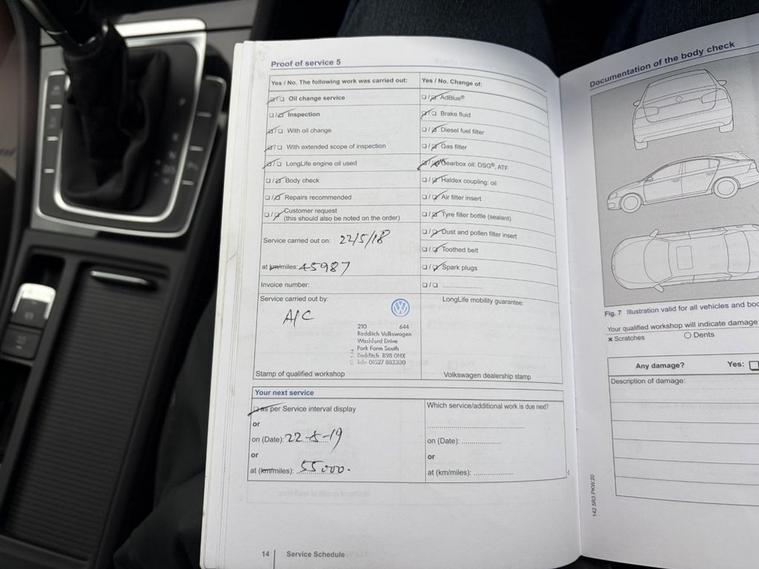 Proof of service 5
Yes / No. The following work was carried out:
Oil change service
Inspection
With oil change
With extended scope of inspection
LongLife engine oil used
Body check
Repairs recommended
Customer request
(this should also be noted on the order)
Service carried out on: 22/5/18
at km/miles: 45987
Invoice number:
Service carried out by:
A/C
210 644
Redditch Volkswagen
Washford Drive
Park Farm South
Redditch B98 0HX
Stamp of qualified workshop
Yes / No. Change of:
AdBlue®
Brake fluid
Diesel fuel filter
Gas filter
Gearbox oil: DSG®, ATF
Haldex coupling: oil
Air filter insert
Tyre filler bottle (sealant)
Dust and pollen filter insert
Toothed belt
Spark plugs
LongLife mobility guarantee:
Volkswagen dealership stamp
Your next service
as per Service interval display
or
on (Date): 22-5-19
or
at (km/miles): 55000.
Which service/additional work is due next?
on (Date):
or
at (km/miles):
14 Service Schedule
Documentation of the body check
Fig. 7 Illustration valid for all vehicles and
Your qualified workshop will indicate damage
x Scratches
O Dents
Any damage? Yes:
Description of damage: